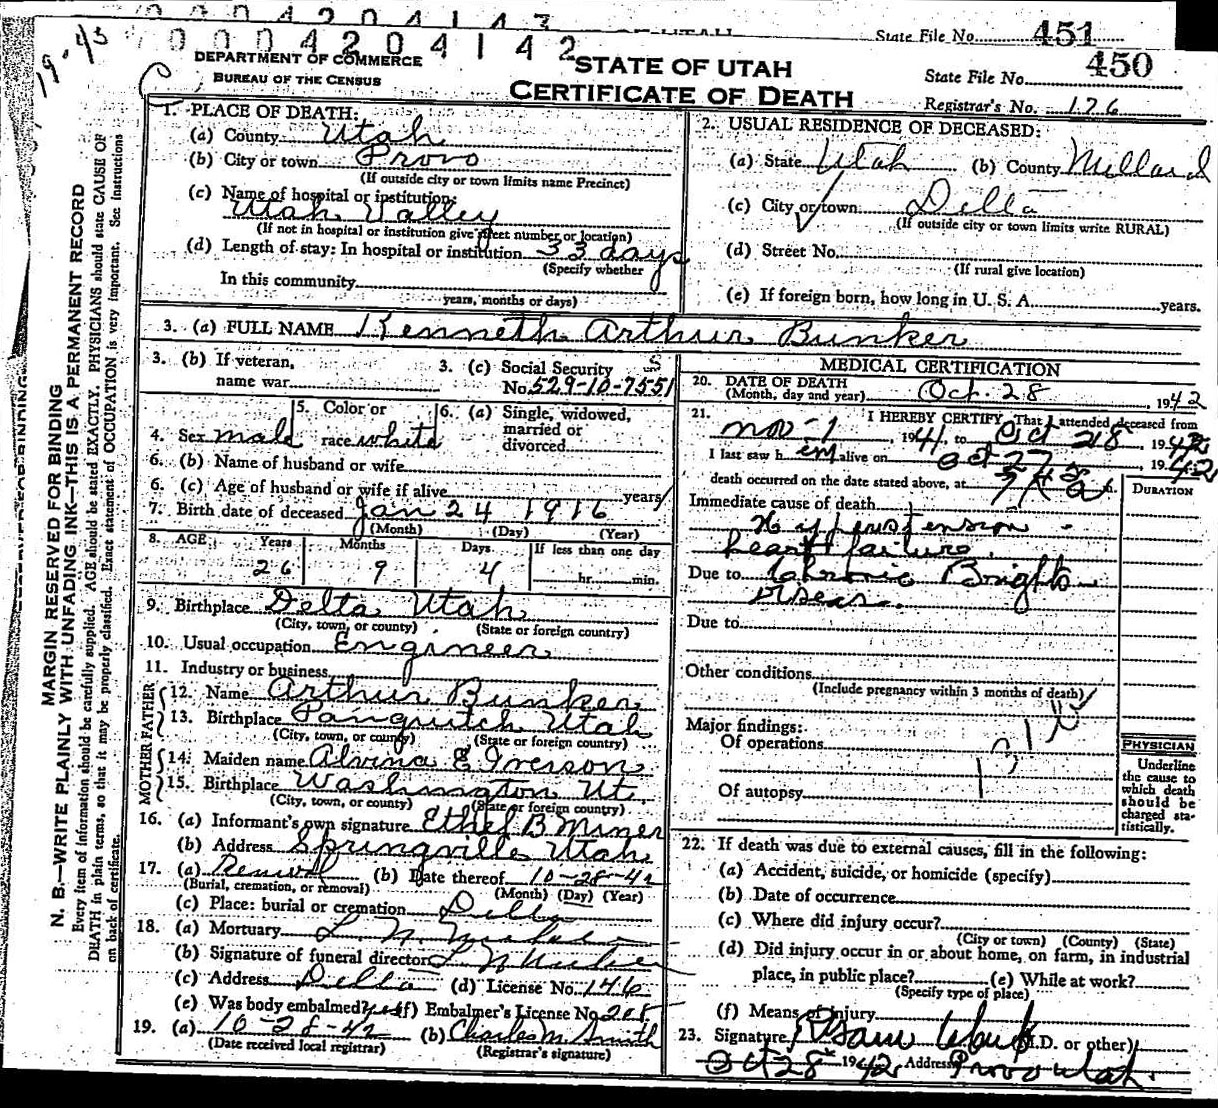 State File No. 451
0 0 0 4 2 0 4 1 4 2
DEPARTMENT OF COMMERCE
BUREAU OF THE CENSUS
STATE OF UTAH
CERTIFICATE OF DEATH
State File No. 450
Registrar's No. 176
MARGIN RESERVED FOR BINDING
N. B.—WRITE PLAINLY WITH UNFADING INK—THIS IS A PERMANENT RECORD
Every item of information should be carefully supplied. AGE should be stated EXACTLY. PHYSICIANS should state CAUSE OF
DEATH in plain terms, so that it may be properly classified. Exact statement of OCCUPATION is very important. See instructions
on back of certificate.
1. PLACE OF DEATH:
(a) County Utah
(b) City or town Provo
(If outside city or town limits name Precinct)
(c) Name of hospital or institution:
Utah Valley
(If not in hospital or institution give street number or location)
(d) Length of stay: In hospital or institution 33 days
(Specify whether
In this community
years, months or days)
2. USUAL RESIDENCE OF DECEASED:
(a) State Utah (b) County Millard
(c) City or town Delta
(If outside city or town limits write RURAL)
(d) Street No.
(If rural give location)
(e) If foreign born, how long in U. S. A. years.
3. (a) FULL NAME Kenneth Arthur Bunker
3. (b) If veteran,
name war
3. (c) Social Security
No. 529-10-7551
4. Sex male
5. Color or
race white
6. (a) Single, widowed,
married or
divorced
6. (b) Name of husband or wife
6. (c) Age of husband or wife if alive years
7. Birth date of deceased Jan 24 1916
(Month) (Day) (Year)
8. AGE Years Months Days If less than one day
26 9 4 hr. min.
9. Birthplace Delta Utah
(City, town, or county) (State or foreign country)
10. Usual occupation Engineer
11. Industry or business
FATHER
12. Name Arthur Bunker
13. Birthplace Panguitch Utah
(City, town, or county) (State or foreign country)
MOTHER
14. Maiden name Alvina E Iverson
15. Birthplace Washington Ut.
(City, town, or county) (State or foreign country)
16. (a) Informant's own signature Ethel B Miner
(b) Address Springville Utah
17. (a) Removal (b) Date thereof 10-28-42
(Burial, cremation, or removal) (Month) (Day) (Year)
(c) Place: burial or cremation Delta
18. (a) Mortuary
(b) Signature of funeral director
(c) Address Delta (d) License No. 146
(e) Was body embalmed? yes (f) Embalmer's License No. 205
19. (a) 10-28-42 (b) Charles M. Smith
(Date received local registrar) (Registrar's signature)
MEDICAL CERTIFICATION
20. DATE OF DEATH
(Month, day and year) Oct. 28, 1942
21. I HEREBY CERTIFY, That I attended deceased from
Nov-1, 1941, to Oct 28, 1942
I last saw h im alive on Oct 27, 1942
death occurred on the date stated above, at
DURATION
Immediate cause of death
Hypertension -
heart failure.
Due to Chronic Brights
Diseas.
Due to
Other conditions
(Include pregnancy within 3 months of death)
Major findings:
Of operations
Of autopsy
PHYSICIAN
Underline
the cause to
which death
should be
charged sta-
tistically.
22. If death was due to external causes, fill in the following:
(a) Accident, suicide, or homicide (specify)
(b) Date of occurrence
(c) Where did injury occur?
(City or town) (County) (State)
(d) Did injury occur in or about home, on farm, in industrial
place, in public place? (e) While at work?
(Specify type of place)
(f) Means of injury
23. Signature (M.D. or other)
Oct 28 1942, Address Provo Utah.